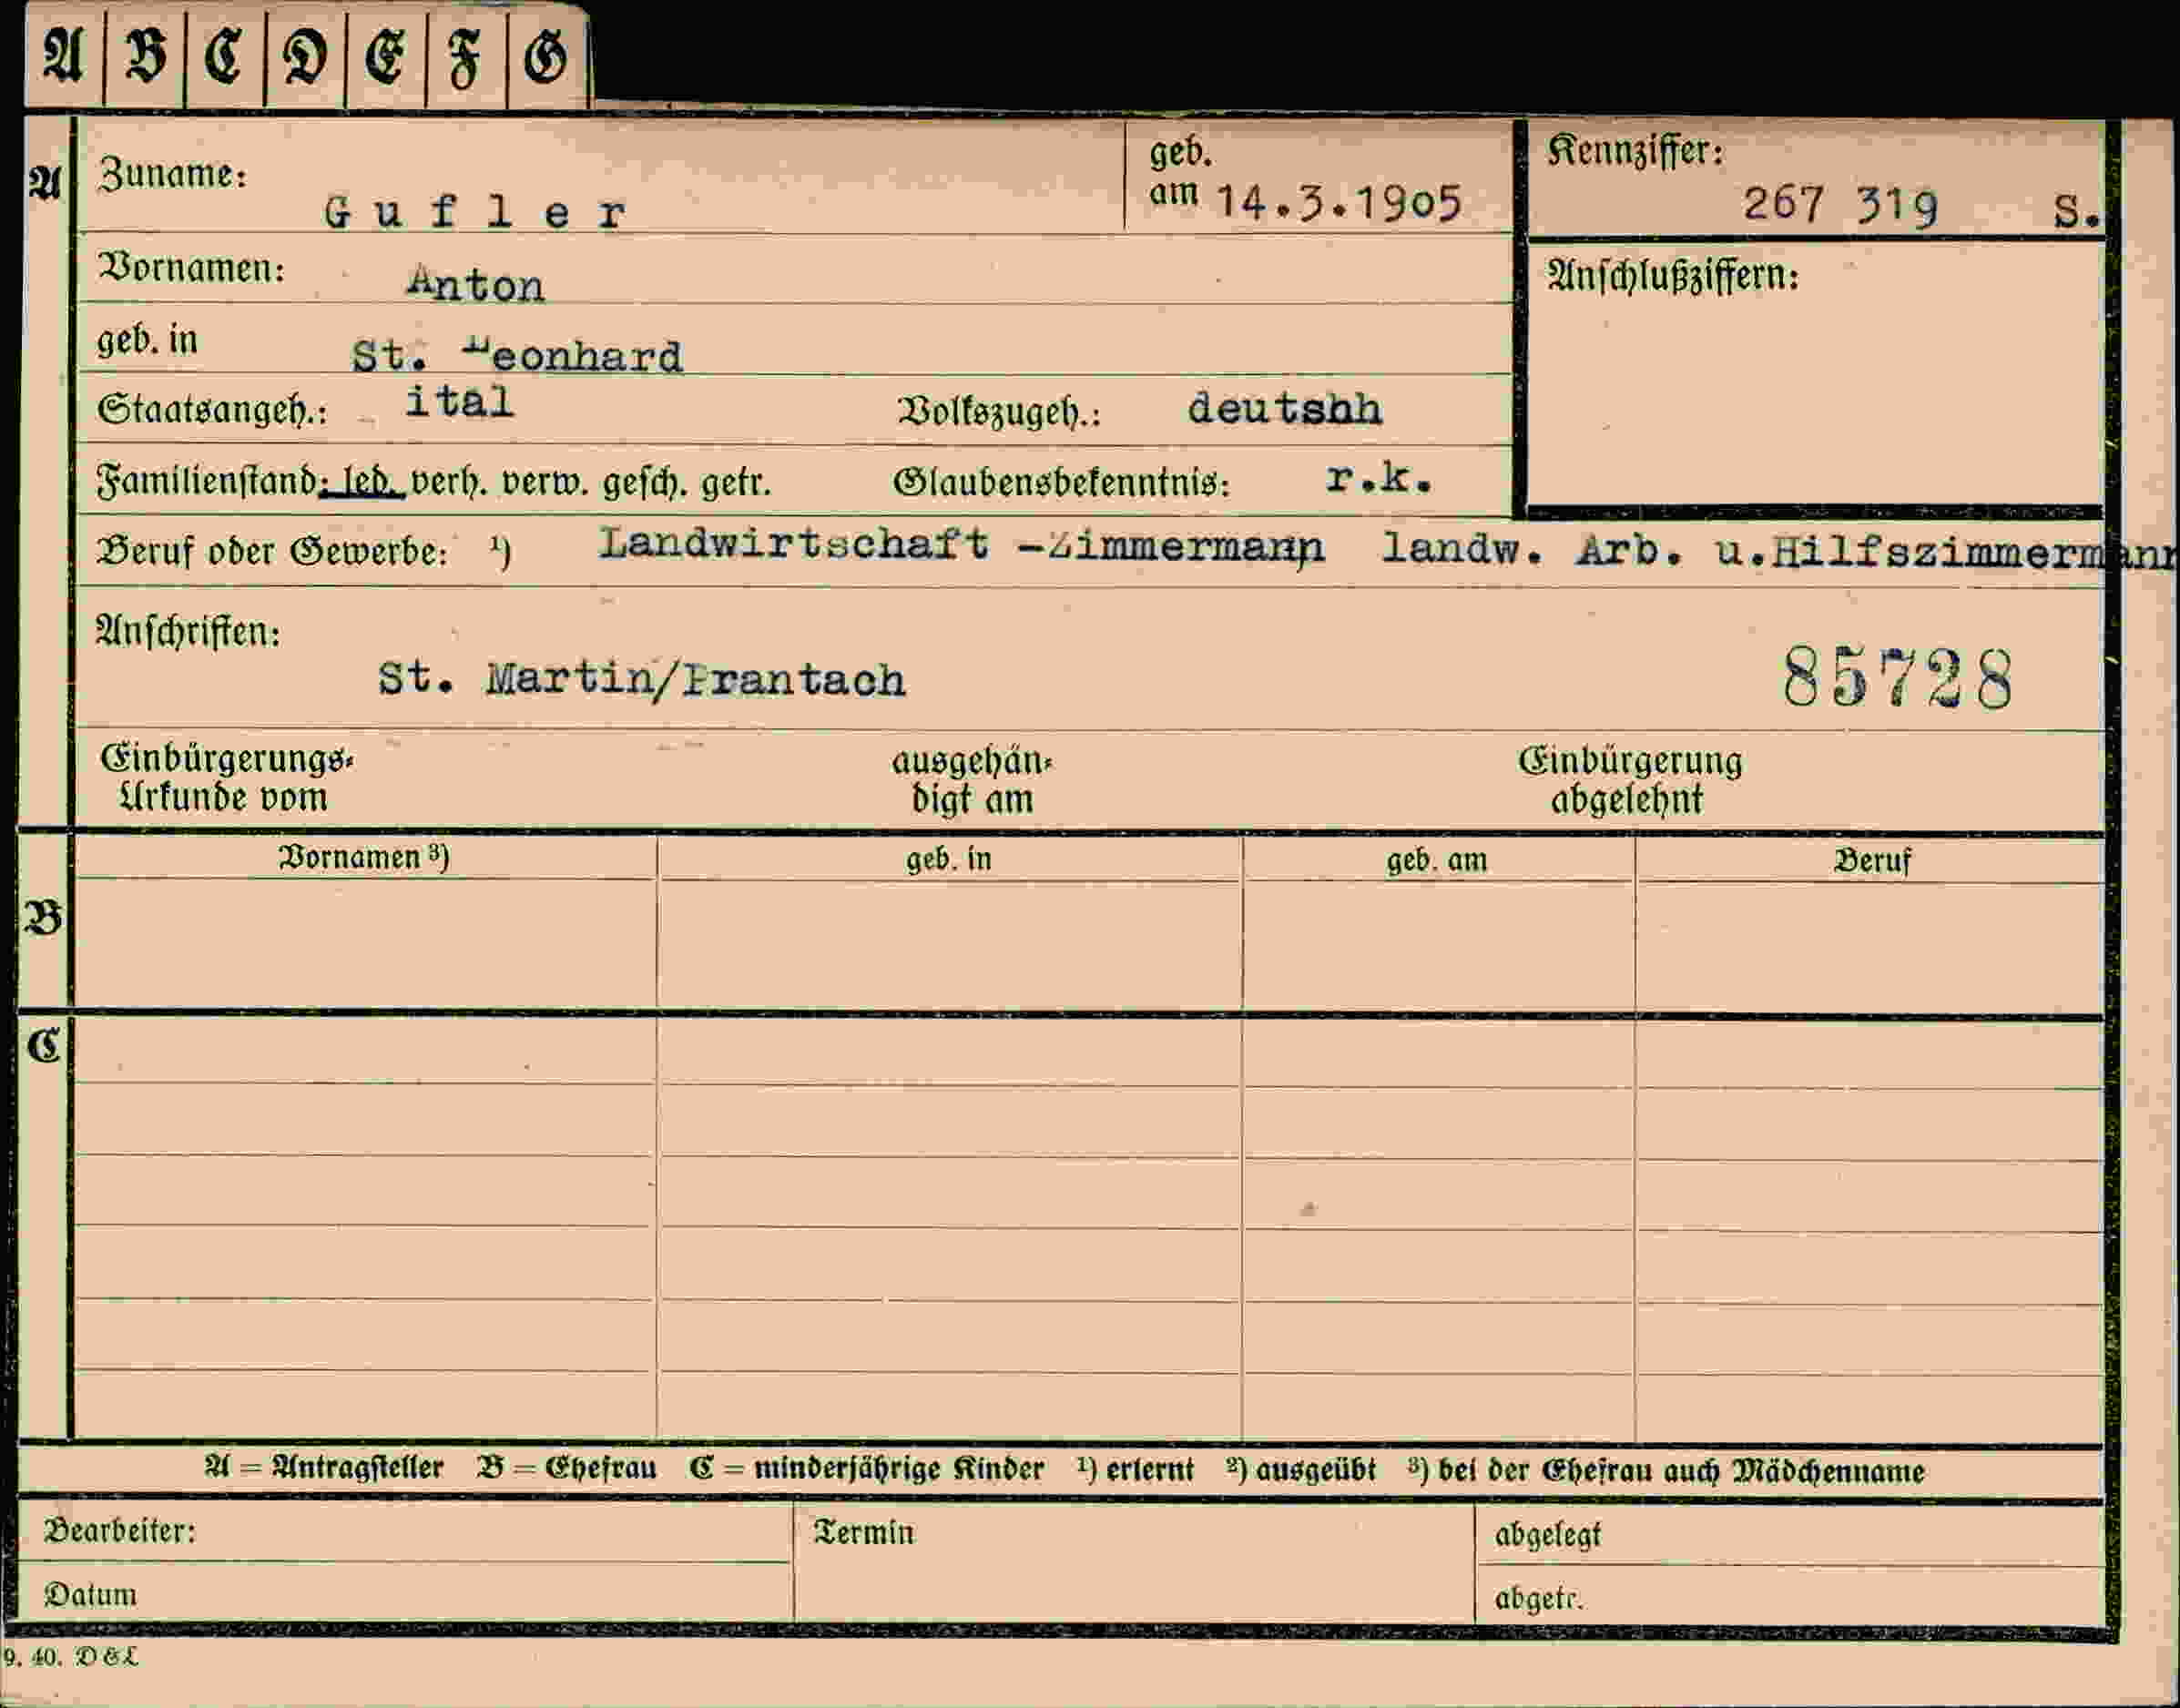 A B C D E F G
A Zuname: Gufler geb. am 14.3.1905 Kennziffer: 267 319 S.
Vornamen: Anton Anschlußziffern:
geb. in St. Leonhard
Staatsangeh.: ital Volkszugeh.: deutshh
Familienstand: led. verh. verw. gesch. getr. Glaubensbekenntnis: r.k.
Beruf oder Gewerbe: ¹) Landwirtschaft -Zimmermann landw. Arb. u.Hilfszimmermann
Anschriften:
St. Martin/Prantach 85728
Einbürgerungs- ausgehän- Einbürgerung
Urkunde vom digt am abgelehnt
Vornamen ³) geb. in geb. am Beruf
B
C
A = Antragsteller B = Ehefrau C = minderjährige Kinder ¹) erlernt ²) ausgeübt ³) bei der Ehefrau auch Mädchenname
Bearbeiter: Termin abgelegt
Datum abgetr.
9. 40. D & L